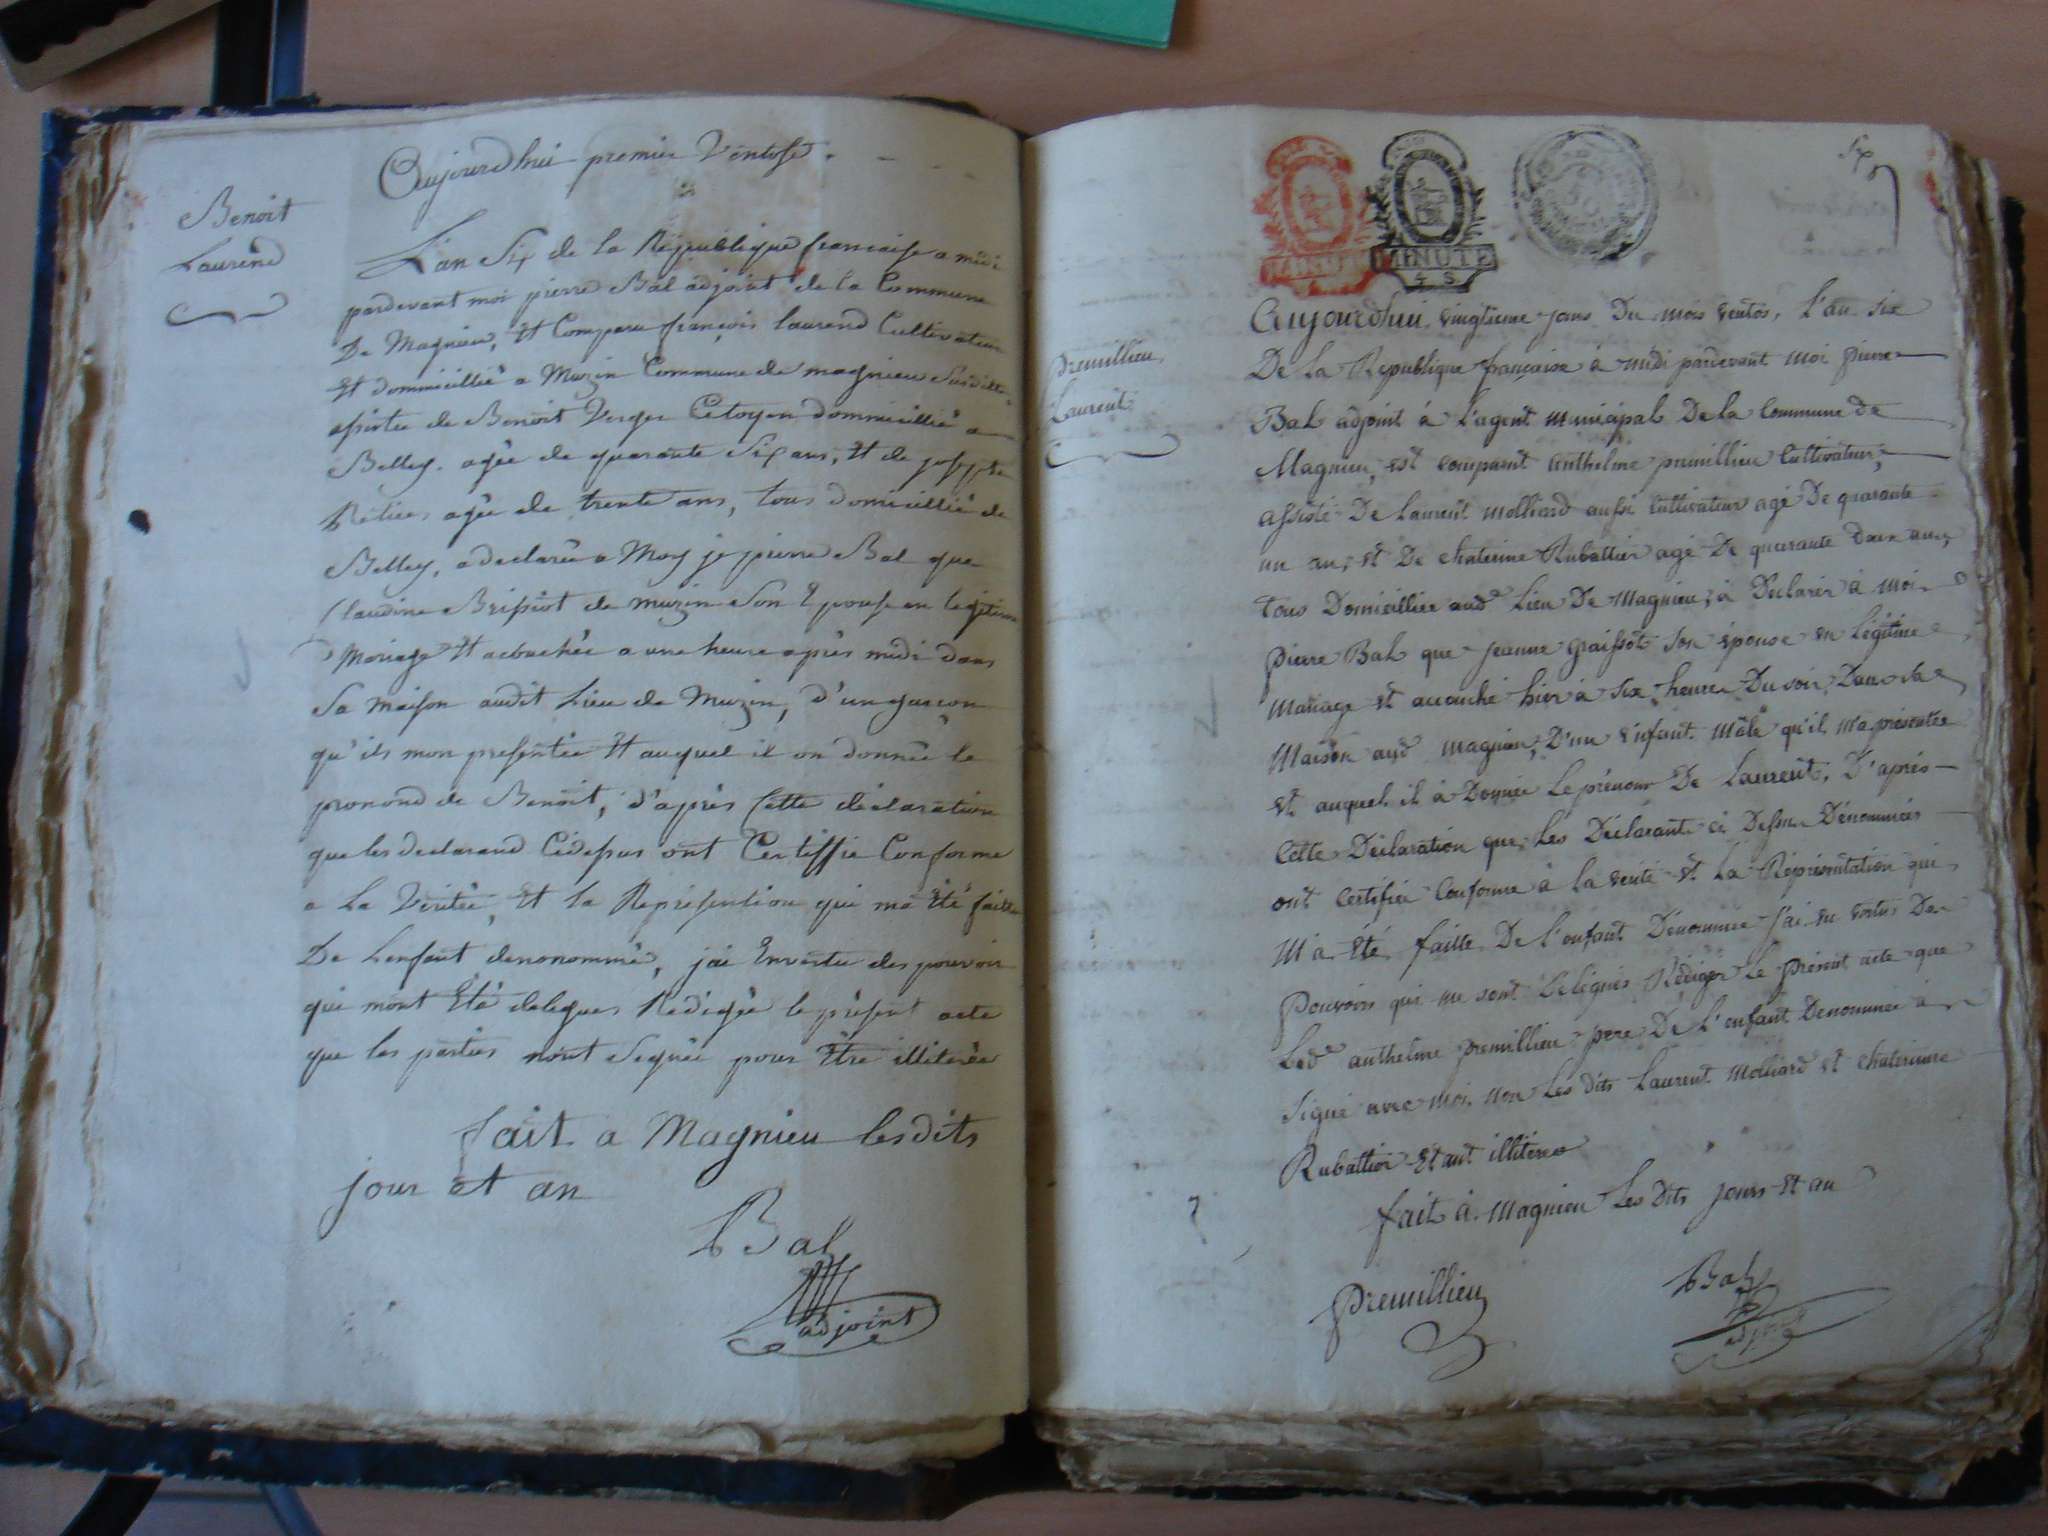 Aujourdhui premier Ventose
Benoit
Laurend
L'an Six de la République francaise a midi
pardevant moi pierre Bal adjoint de la Commune
De Magnieu, Et Comparu françois laurend Cultivateur
Et dommicillié a Muzin Commune de magnieu Susditte
assistée de Benoit Verger Citoyen dommicillié a
Belley agée de quarante Six ans, Et de josepte
agée de trente ans, tous domicillié de
Belley, a declarée a Moy je pierre Bal que
Claudine de muzin Son Epouse en legitime
Mariage Et acouchée a une heure après midi dans
Sa maison audit Lieu de Muzin, d'un garcon
qu'ils mon presentée Et auquel il on donnée le
pronond de Benoit, d'après Cette déclaration
que les declarand Cidessus ont Certiffié Conforme
a La Véritée, Et la Represention qui ma Eté faitte
De Lenfant denonommé, jai Envertu des pouvoir
qui mont Eté delegues Redigée le présent acte
que les parties n'ont Signée pour Être illiterée
fait a Magnieu les dits
jour et an
Bal
adjoint
MINUTE
4 S
Six
premillieu
Laurent
Aujourd'hui vingtieme jour Du mois ventos, l'an six
De la Republique française à midi pardevant moi pierre
Bal adjoint à l'agent municipal De la Commune de
Magnieu, est comparut Anthelme premillieu Cultivateur,
assisté De Laurent Molliard aussi Cultivateur agé De quarante
un an, et De chaterine Rubattier agé De quarante ans,
tous Domicilliée aud.e Lieu De Magnieu, à Déclarer à moi
pierre Bal que jeanne graissot son épouse en légitime
mariage et accouché hier à six heures Du soir, Dans sa
Maison aud magnieu, D'un enfant mâle qu'il m'a présentée
et auquel il à Donnée Le prénom De Laurent, D'après
Cette Déclaration que Les Déclarants ci Dessus Dénommées
ont certifiée Conforme à la verité et La Représentation qui
M'a été faitte De l'enfant Dénommée j'ai en vertus De
Pouvoirs qui me sont Délégués Rédiger Le présent acte que
Led.e anthelme premillieu pere De L'enfant Denommée à
signé avec moi non Les dits Laurent Molliard et chaterinne
Rubattier Etant illiterée
fait à Magnieu Les Dits jours et an
Premillieu
Bal
adjoint